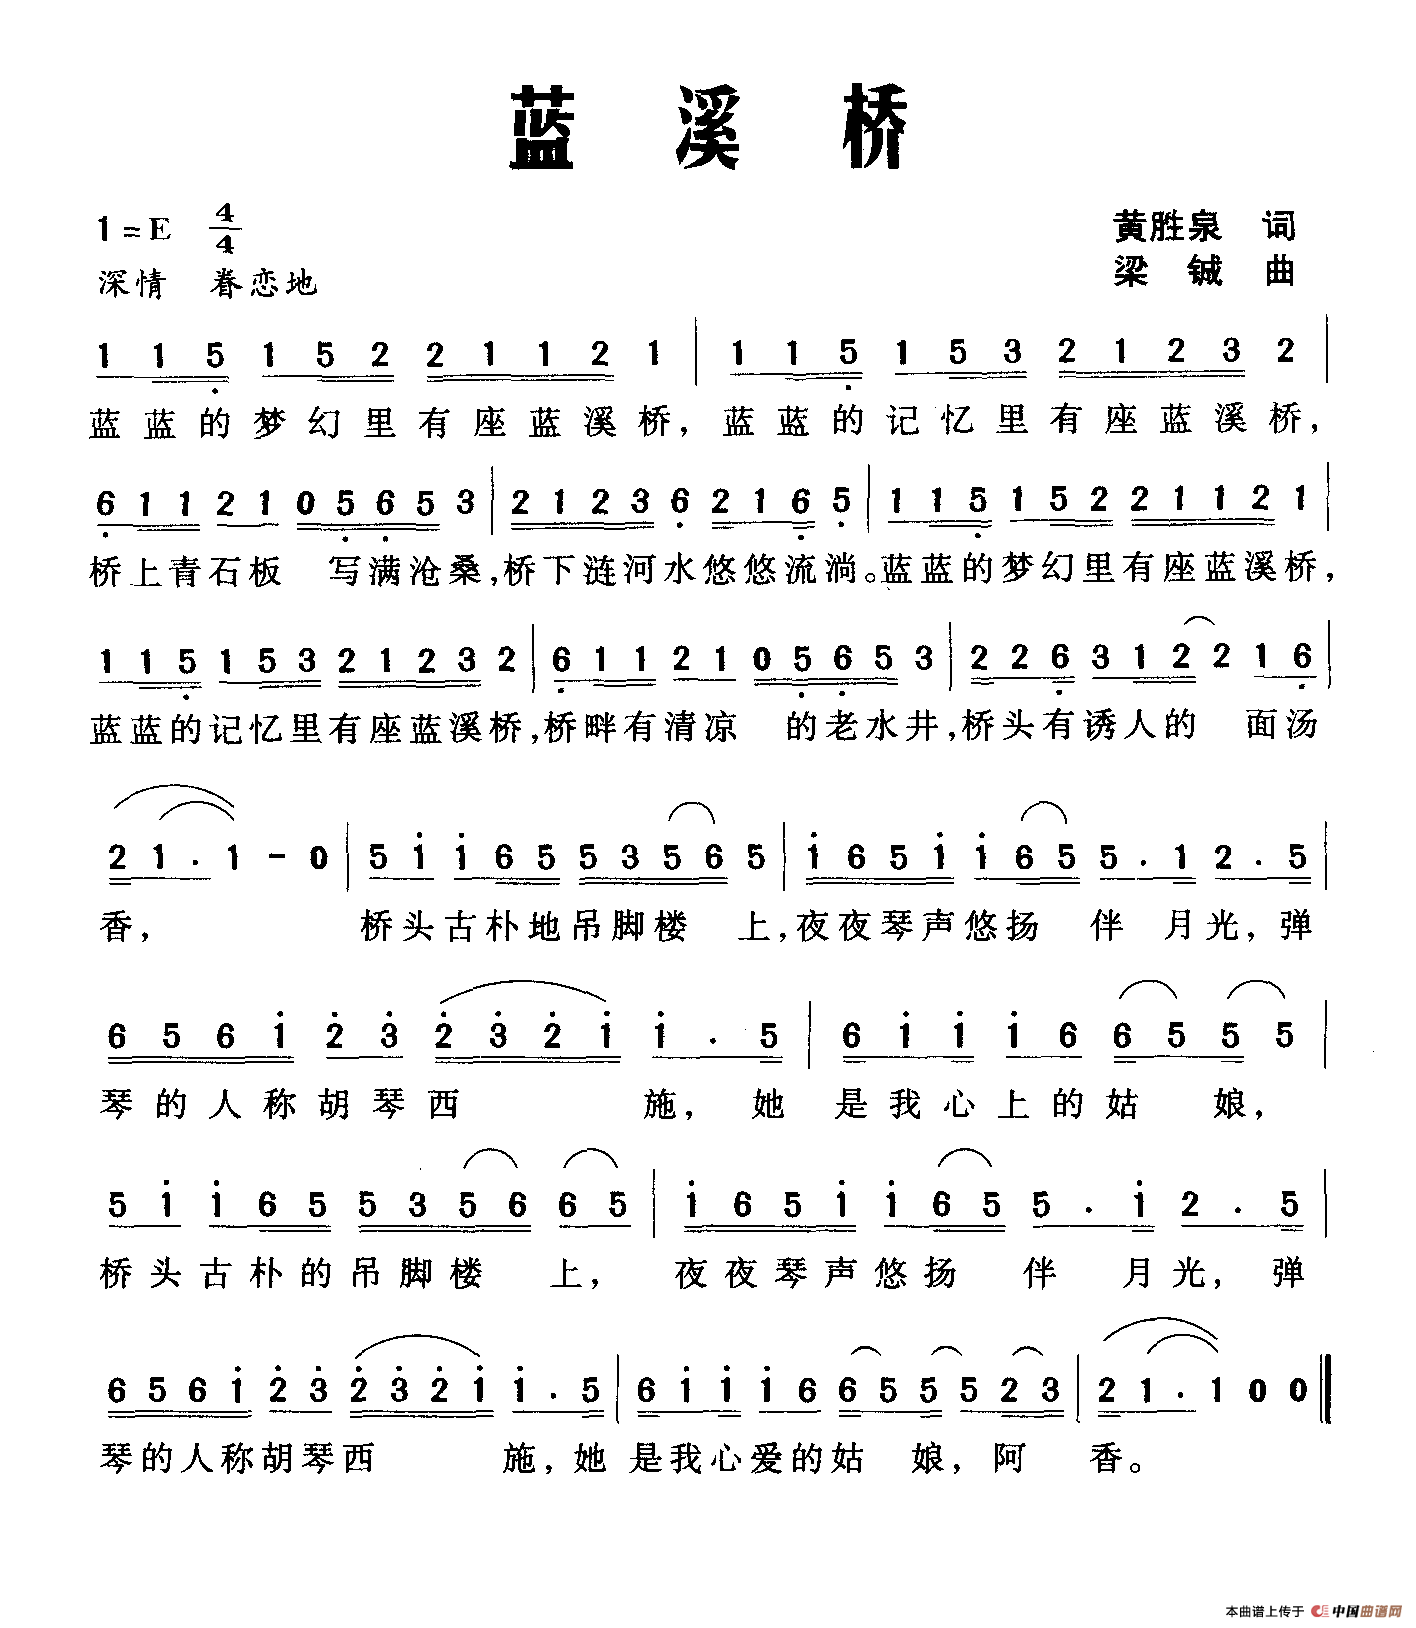 蓝溪桥
1=E 4/4
黄胜泉 词
深情 眷恋地
梁 铖 曲
1 1 5 1 5 2 2 1 1 2 1 | 1 1 5 1 5 3 2 1 2 3 2 |
蓝蓝的梦幻里有座蓝溪桥，蓝蓝的记忆里有座蓝溪桥，
6 1 1 2 1 0 5 6 5 3 | 2 1 2 3 6 2 1 6 5 | 1 1 5 1 5 2 2 1 1 2 1 |
桥上青石板 写满沧桑，桥下涟河水悠悠流淌。蓝蓝的梦幻里有座蓝溪桥，
1 1 5 1 5 3 2 1 2 3 2 | 6 1 1 2 1 0 5 6 5 3 | 2 2 6 3 1 2 2 1 6 |
蓝蓝的记忆里有座蓝溪桥，桥畔有清凉 的老水井，桥头有诱人的 面汤
2 1 . 1 - 0 | 5 1 1 6 5 5 3 5 6 5 | 1 6 5 1 1 6 5 5 . 1 2 . 5 |
香， 桥头古朴地吊脚楼 上，夜夜琴声悠扬 伴 月光，弹
6 5 6 1 2 3 2 3 2 1 1 . 5 | 6 1 1 1 6 6 5 5 5 |
琴的人称胡琴西 施，她 是我心上的姑 娘，
5 1 1 6 5 5 3 5 6 6 5 | 1 6 5 1 1 6 5 5 . 1 2 . 5 |
桥头古朴的吊脚楼 上， 夜夜琴声悠扬 伴 月光，弹
6 5 6 1 2 3 2 3 2 1 1 . 5 | 6 1 1 1 6 6 5 5 5 2 3 | 2 1 . 1 0 0 ‖
琴的人称胡琴西 施，她 是我心爱的姑 娘，阿 香。
本曲谱上传于 中国曲谱网